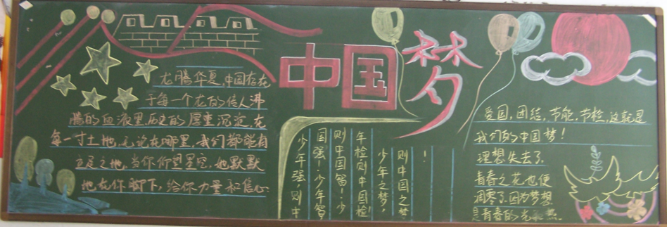 中国梦
龙腾华夏,中国在龙
于每一个龙的传人沸
腾的血液里,历史的厚重沉淀在
每一寸土地,无论在哪里,我们都能有
立足之地,当你仰望星空,她默默
地在你脚下,给你力量和信心
少年强,则中
国强!少年智
则中国智!少
年检则中国检!
少年之梦,
则中国之梦
!
爱国,团结,节能,节检,这就是
我们的中国梦!
理想失去了,
青春之花也便
凋零了,因为梦想
是青春的光和热